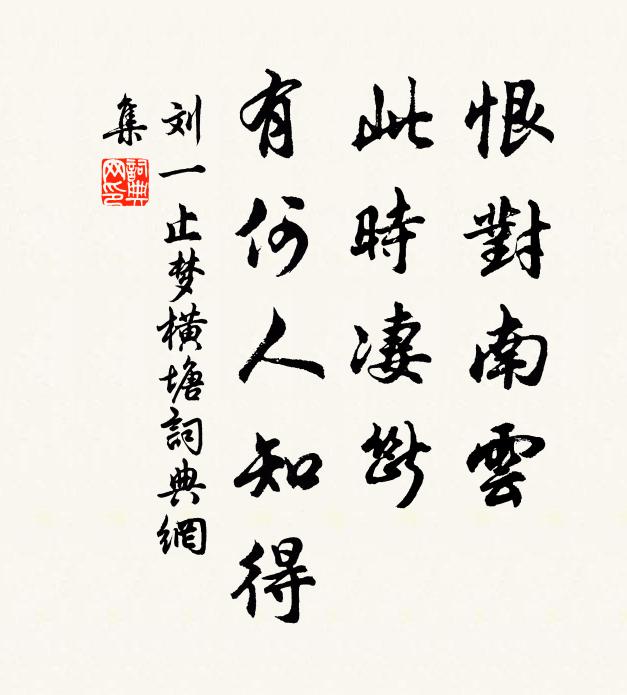 恨對南雲
此時凄斷
有何人知得
刘一止梦橫塘詞典網
集
詞典網印